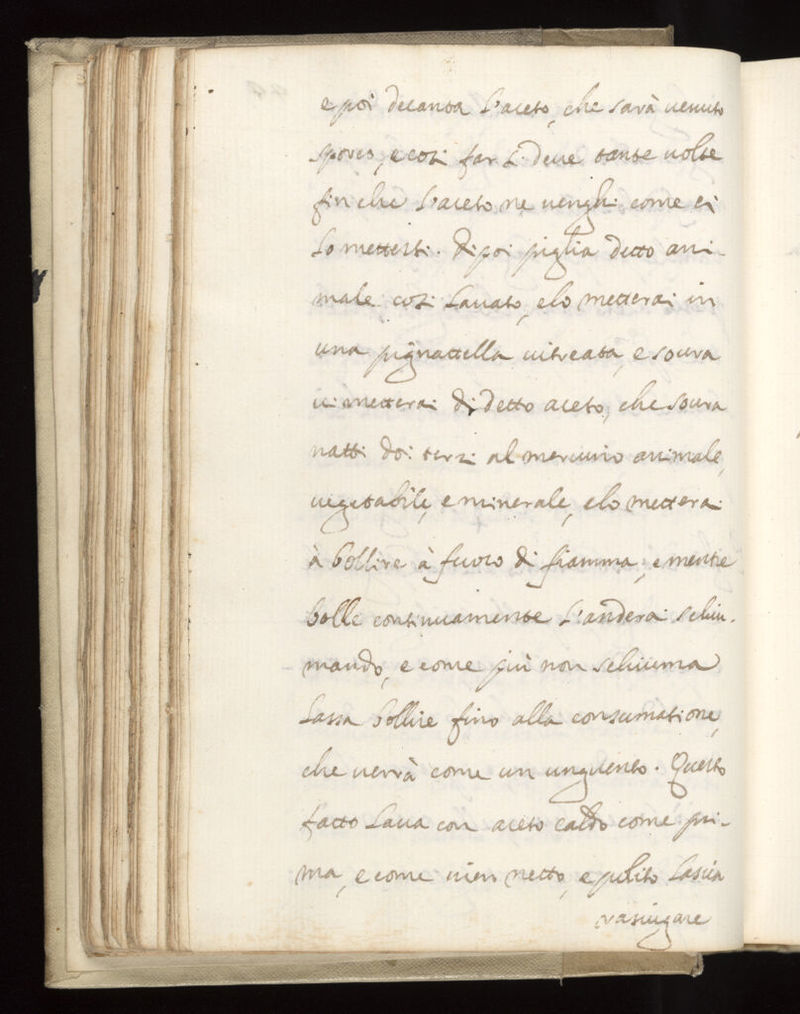 e poi decanta l'aceto, che sarà venuto
sporco, e così far si deve tante volte
fin che l'aceto ne venghi come ci
lo mettesti. Di poi piglia detto ani-
male così lavato, e lo metterai in
una pignattella vitreata, e sovra
vi metterai di detto aceto, che sovra
natti doi terzi al mercurio animale,
vegetabile, e minerale, e lo metterai
à bollire à fuoco di fiamma, e mentre
bolle continuamente l'anderai schiu-
mando, e come più non schiuma
lassa bollire fino alla consumatione,
che verrà come un unguento. Questo
fatto lava con aceto caldo come pri-
ma, e come vien netto, e pulito lascia
rasciugare